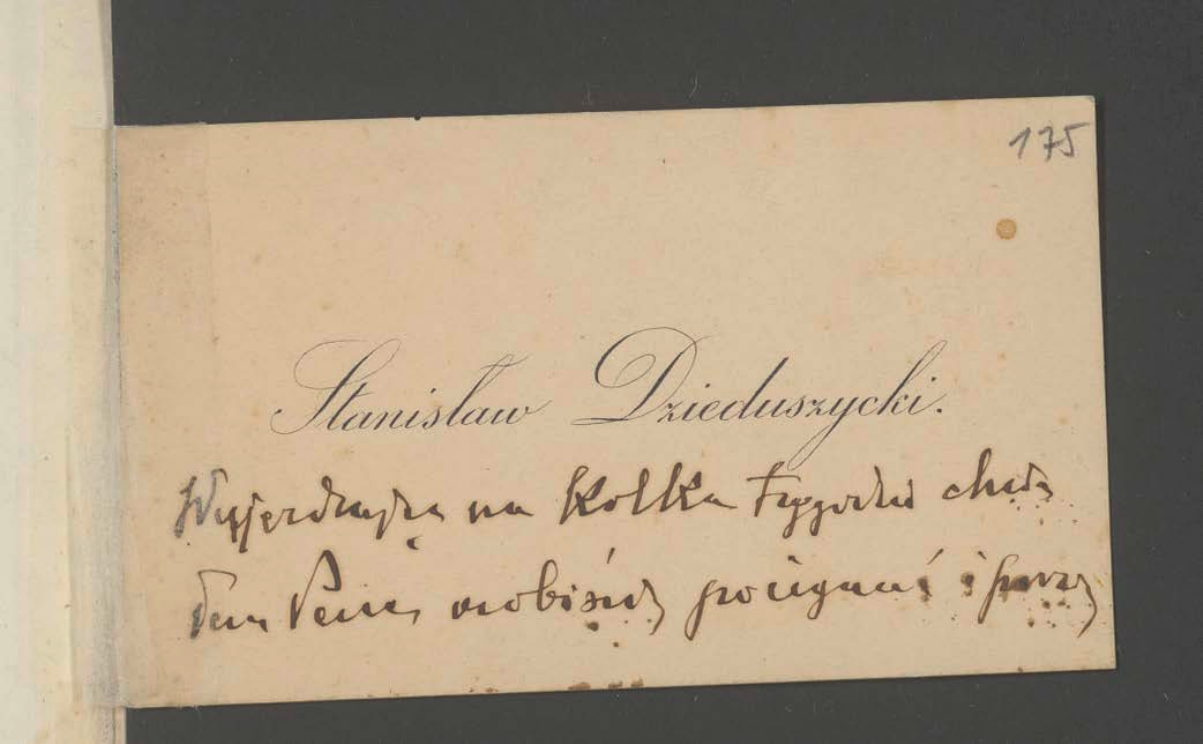 175
Stanisław Dzieduszycki.
Wyjeżdżając na kolka tygodni
Pana osobiście pożegnać i